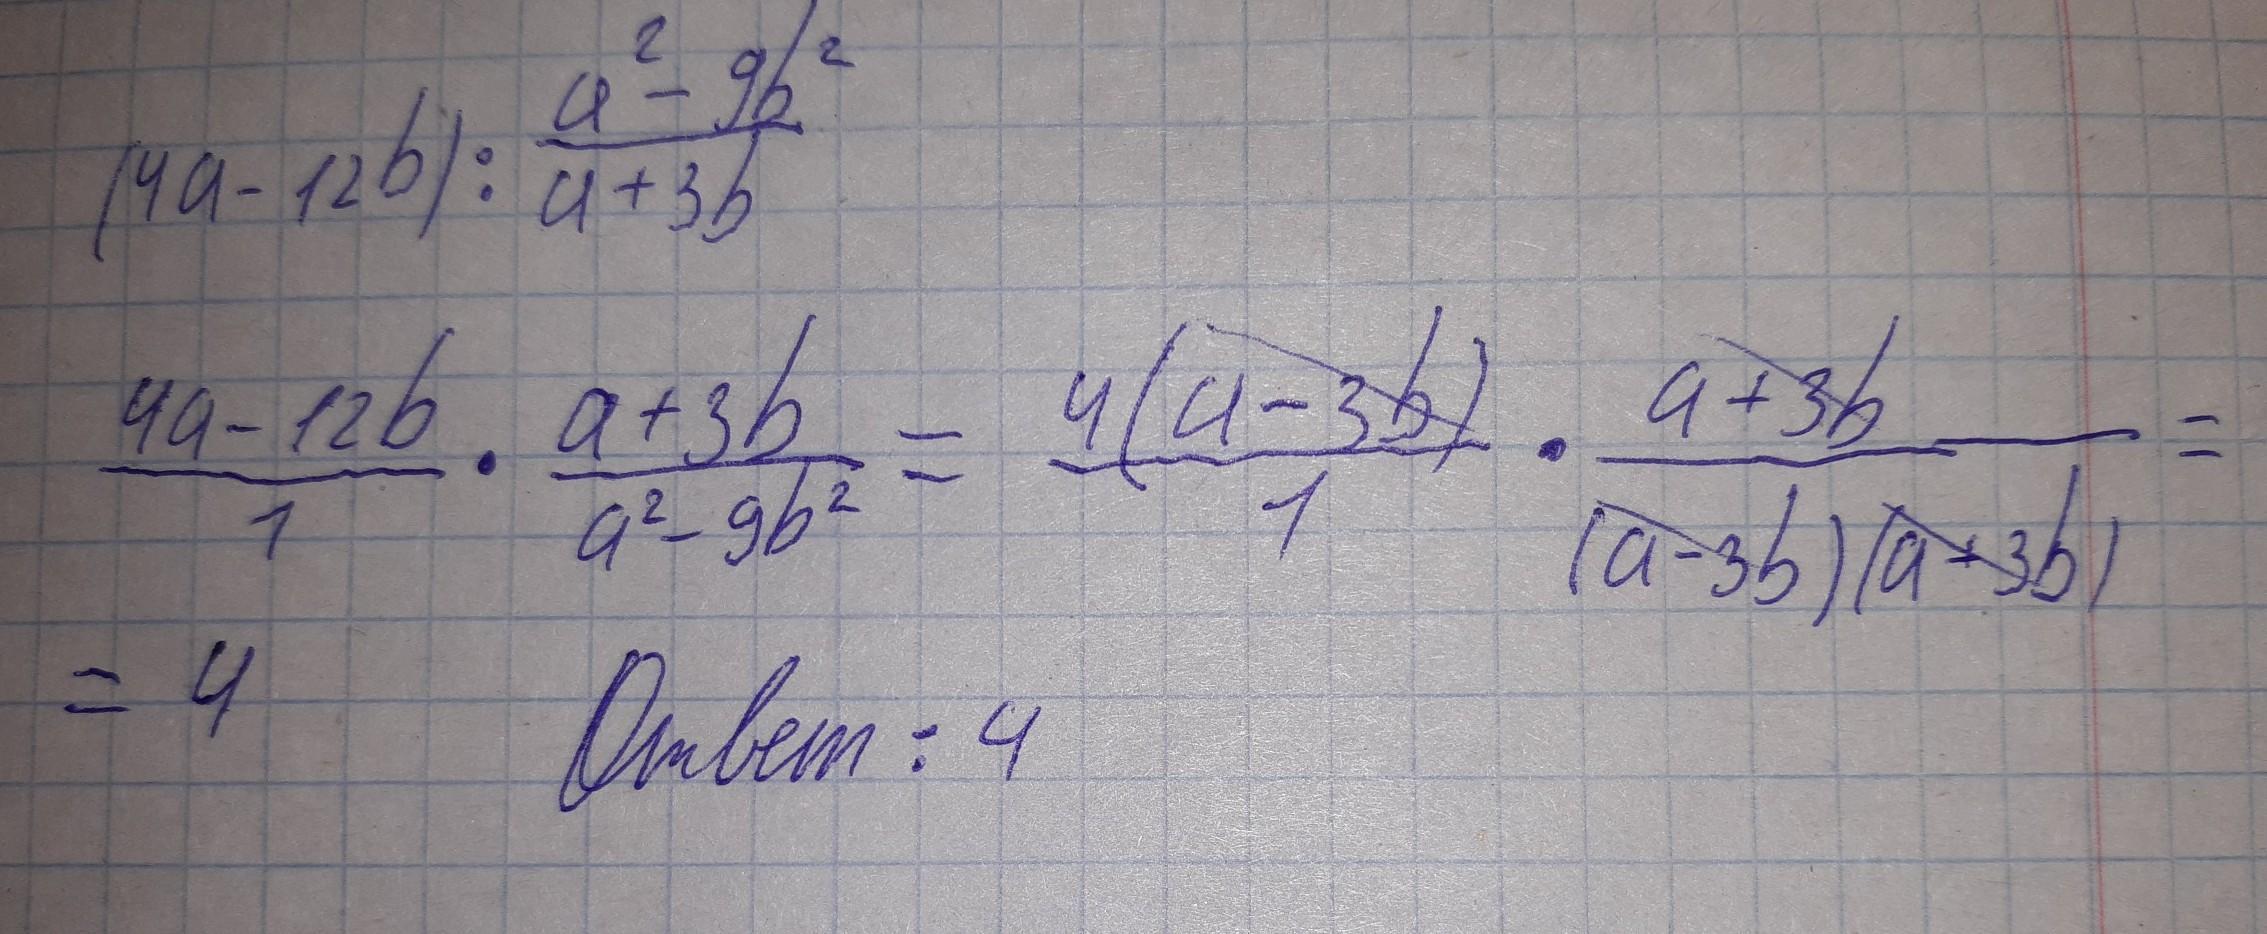 (4a - 12b) : \frac{a^2 - 9b^2}{a + 3b}
\frac{4a - 12b}{1} \cdot \frac{a + 3b}{a^2 - 9b^2} = \frac{4(a - 3b)}{1} \cdot \frac{a + 3b}{(a - 3b)(a + 3b)} =
= 4 Ответ: 4